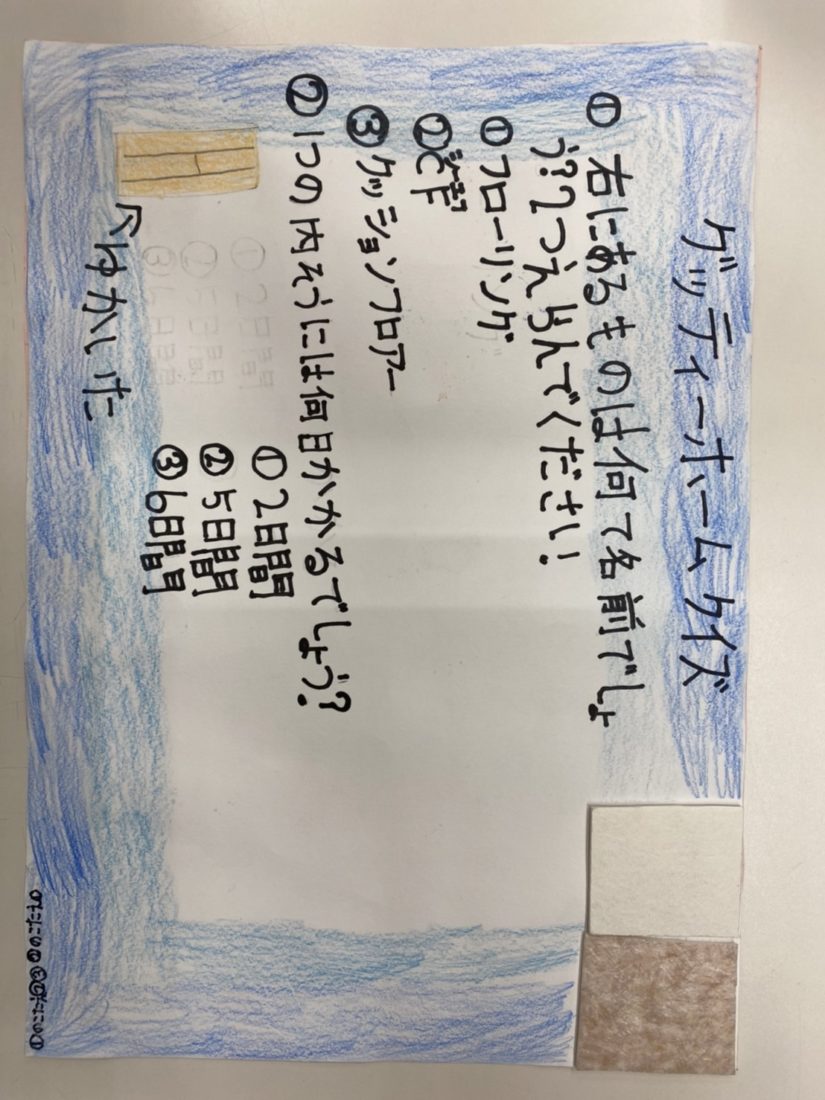 グッティーホームクイズ
① 右にあるものは何て名前でしょ
う?2つえらんでください!
① フローリング
② CF
③ クッションフロアー
② 1つの内そうには何日かかるでしょう?
① 2日間
② 5日間
③ 6日間
↑ゆかいた